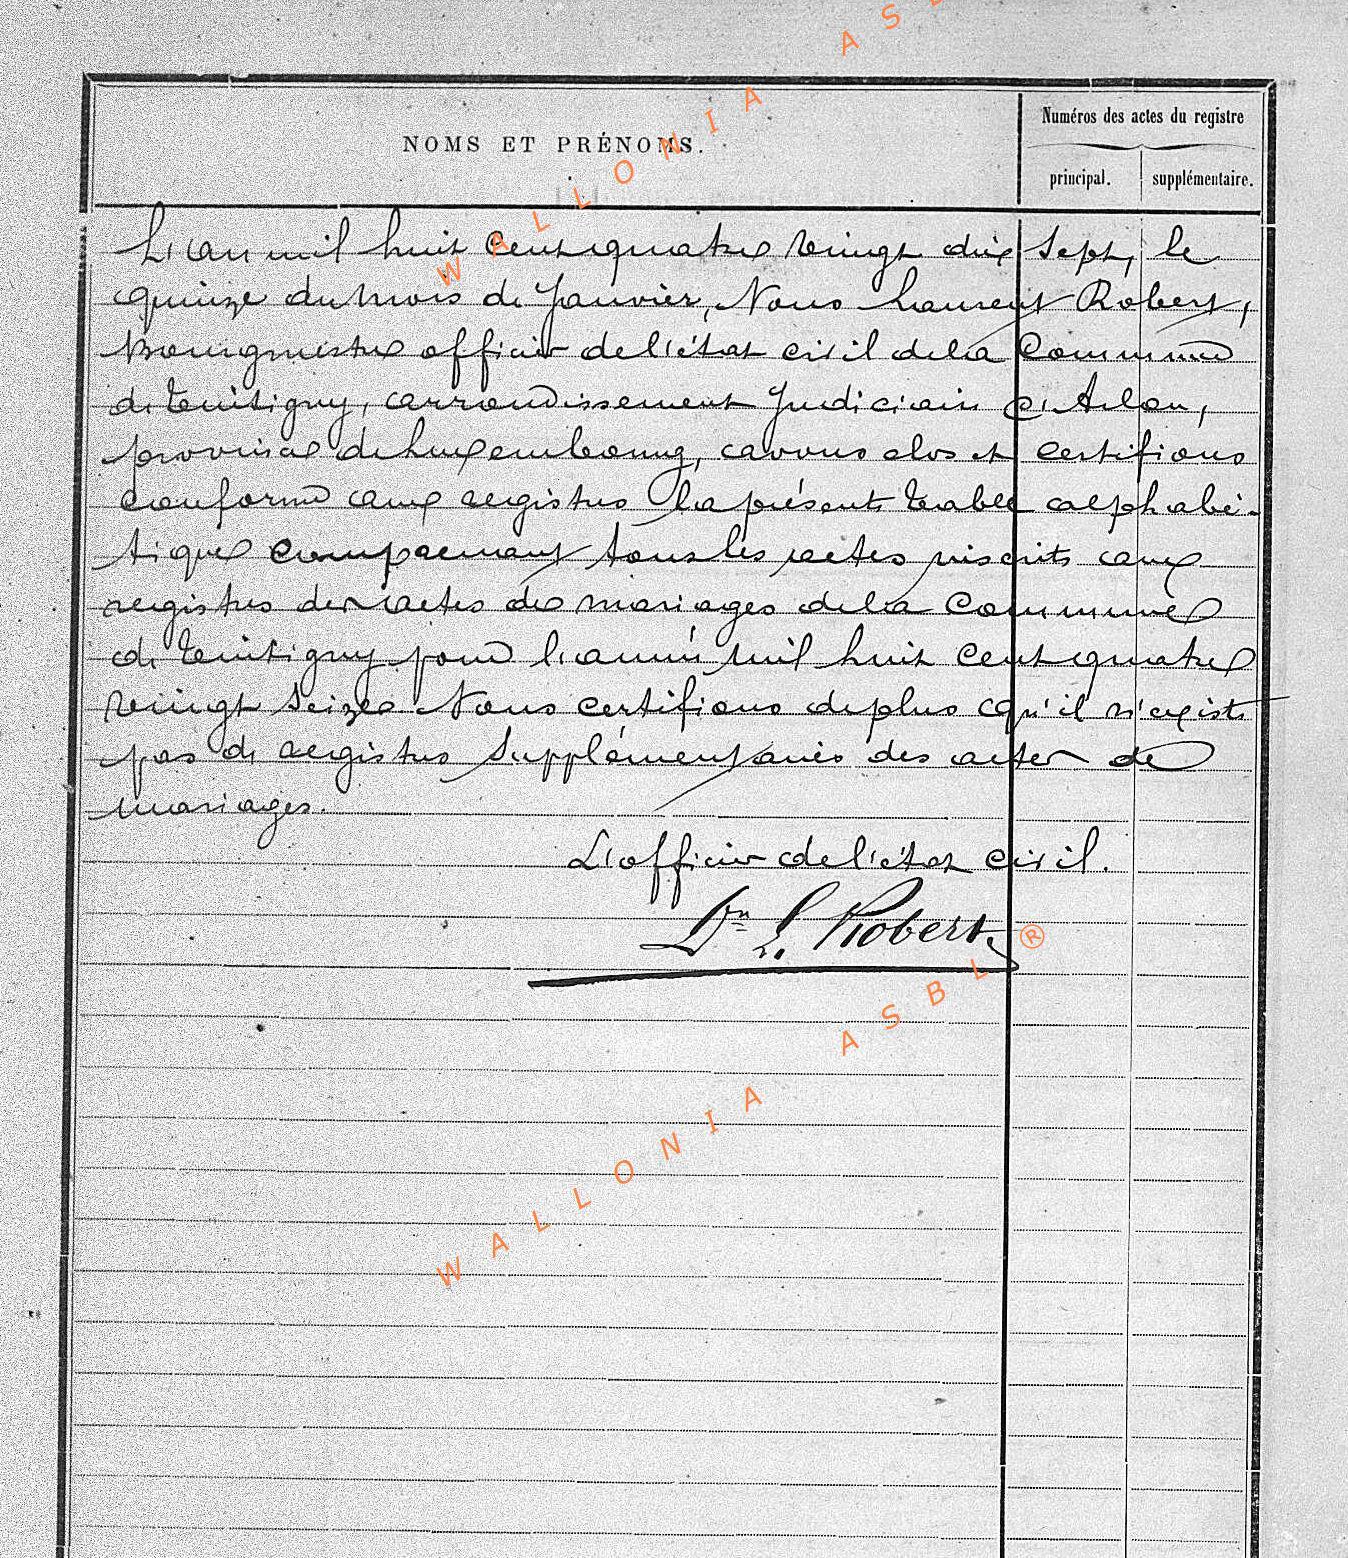 NOMS ET PRÉNOMS.
Numéros des actes du registre
principal. supplémentaire.
L'an mil huit cent quatre vingt dix sept, le
quinze du mois de Janvier, Nous Laurent Robert,
Bourgmestre officier de l'état civil de la Commune
de Tintigny, arrondissement Judiciaire d'Arlon,
province de Luxembourg, avons clos et certifions
conforme aux registres la présente table alphabé-
tique comprenant tous les actes inscrits aux
registres des actes de mariages de la Commune
de Tintigny pour l'année mil huit cent quatre
vingt seize. Nous certifions de plus qu'il n'existe
pas de registres supplémentaires des actes de
mariages.
L'officier de l'état civil.
Dr L. Robert
WALLONIA ASBL®
WALLONIA AS